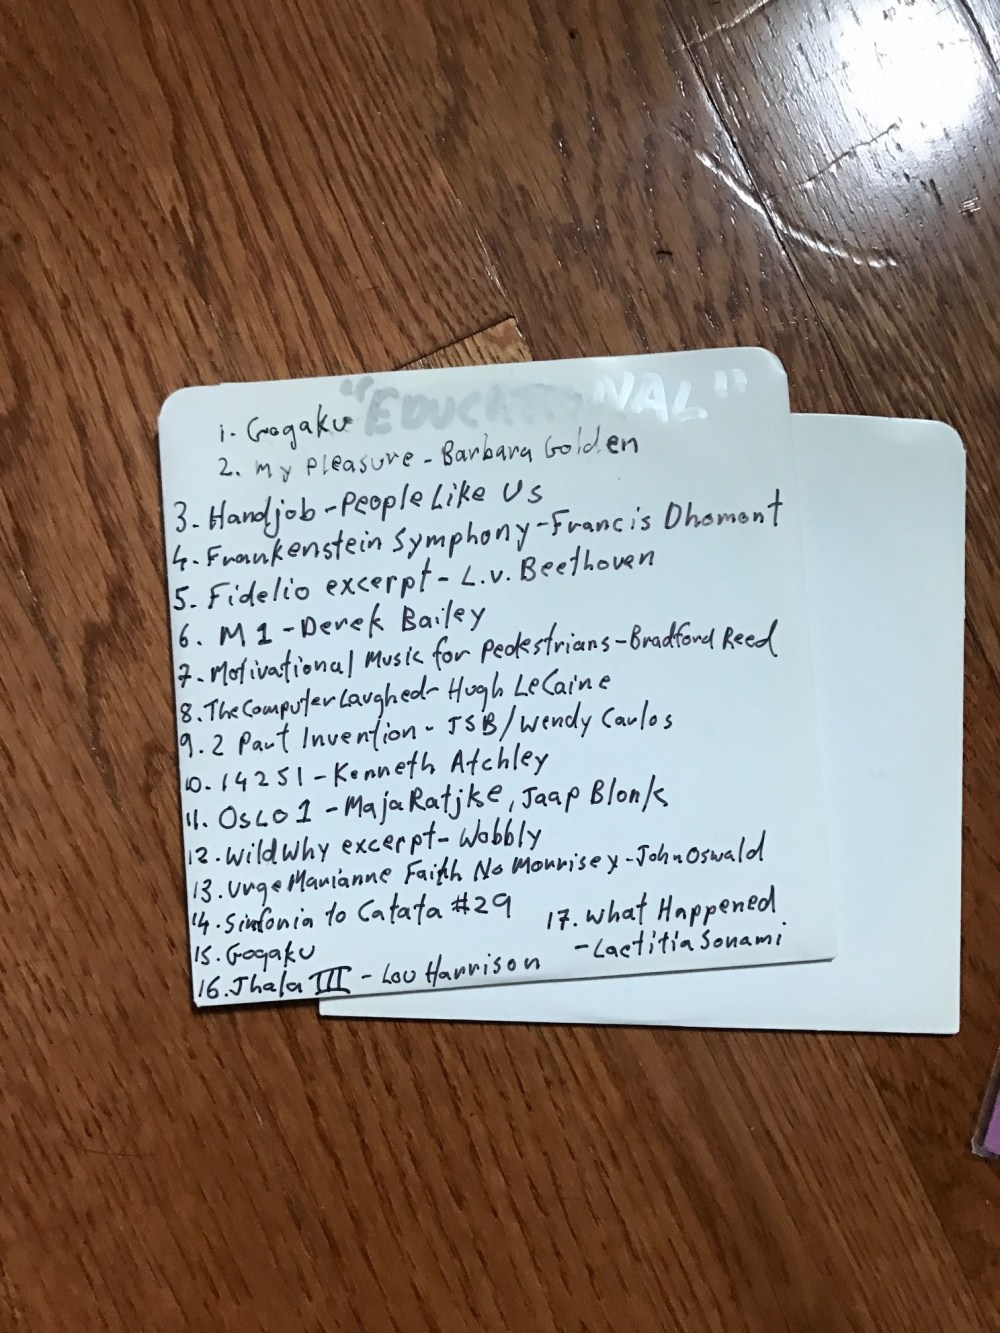 "EDUCATIONAL"
1. Gagaku
2. My Pleasure - Barbara Golden
3. Handjob - People Like Us
4. Frankenstein Symphony - Francis Dhomont
5. Fidelio excerpt - L.v. Beethoven
6. M1 - Derek Bailey
7. Motivational Music for Pedestrians - Bradford Reed
8. The Computer Laughed - Hugh LeCaine
9. 2 Part Invention - JSB/Wendy Carlos
10. 14251 - Kenneth Atchley
11. OSLO 1 - Maja Ratjke, Jaap Blonk
12. Wild Why excerpt - Wobbly
13. Urge Marianne Faith No Morrisey - John Oswald
14. Sinfonia to Catata #29
15. Gagaku
16. Jhala III - Lou Harrison
17. What Happened
- Laetitia Sonami